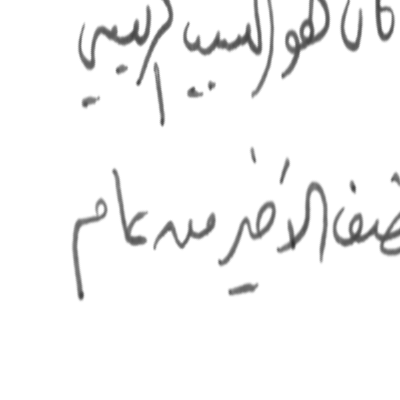 كان هو السبب الرئيسي
النصف الأخير من عام